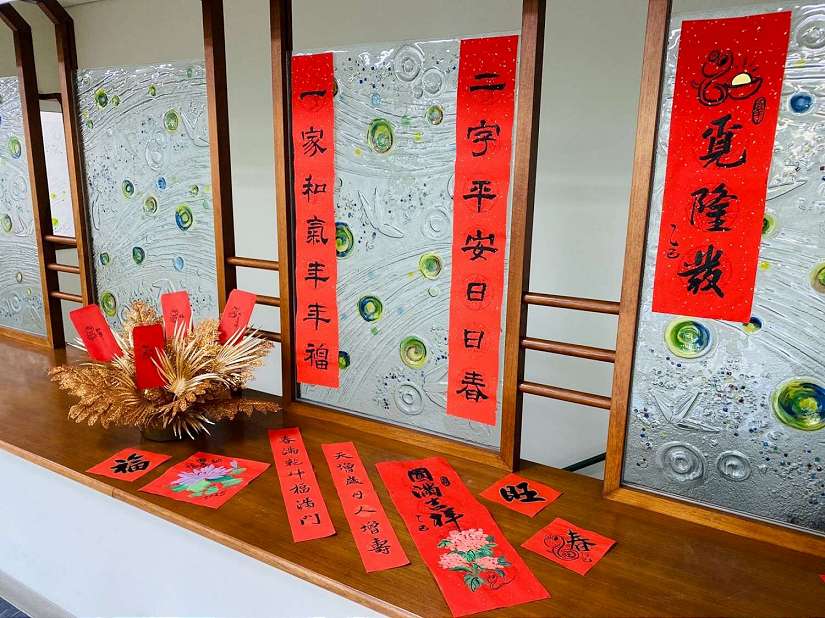 二字平安日日春
一家和氣年年福
覓隆發
乙巳
福
春滿乾坤福滿門
天增歲月人增壽
圓滿吉祥
乙巳
旺
春